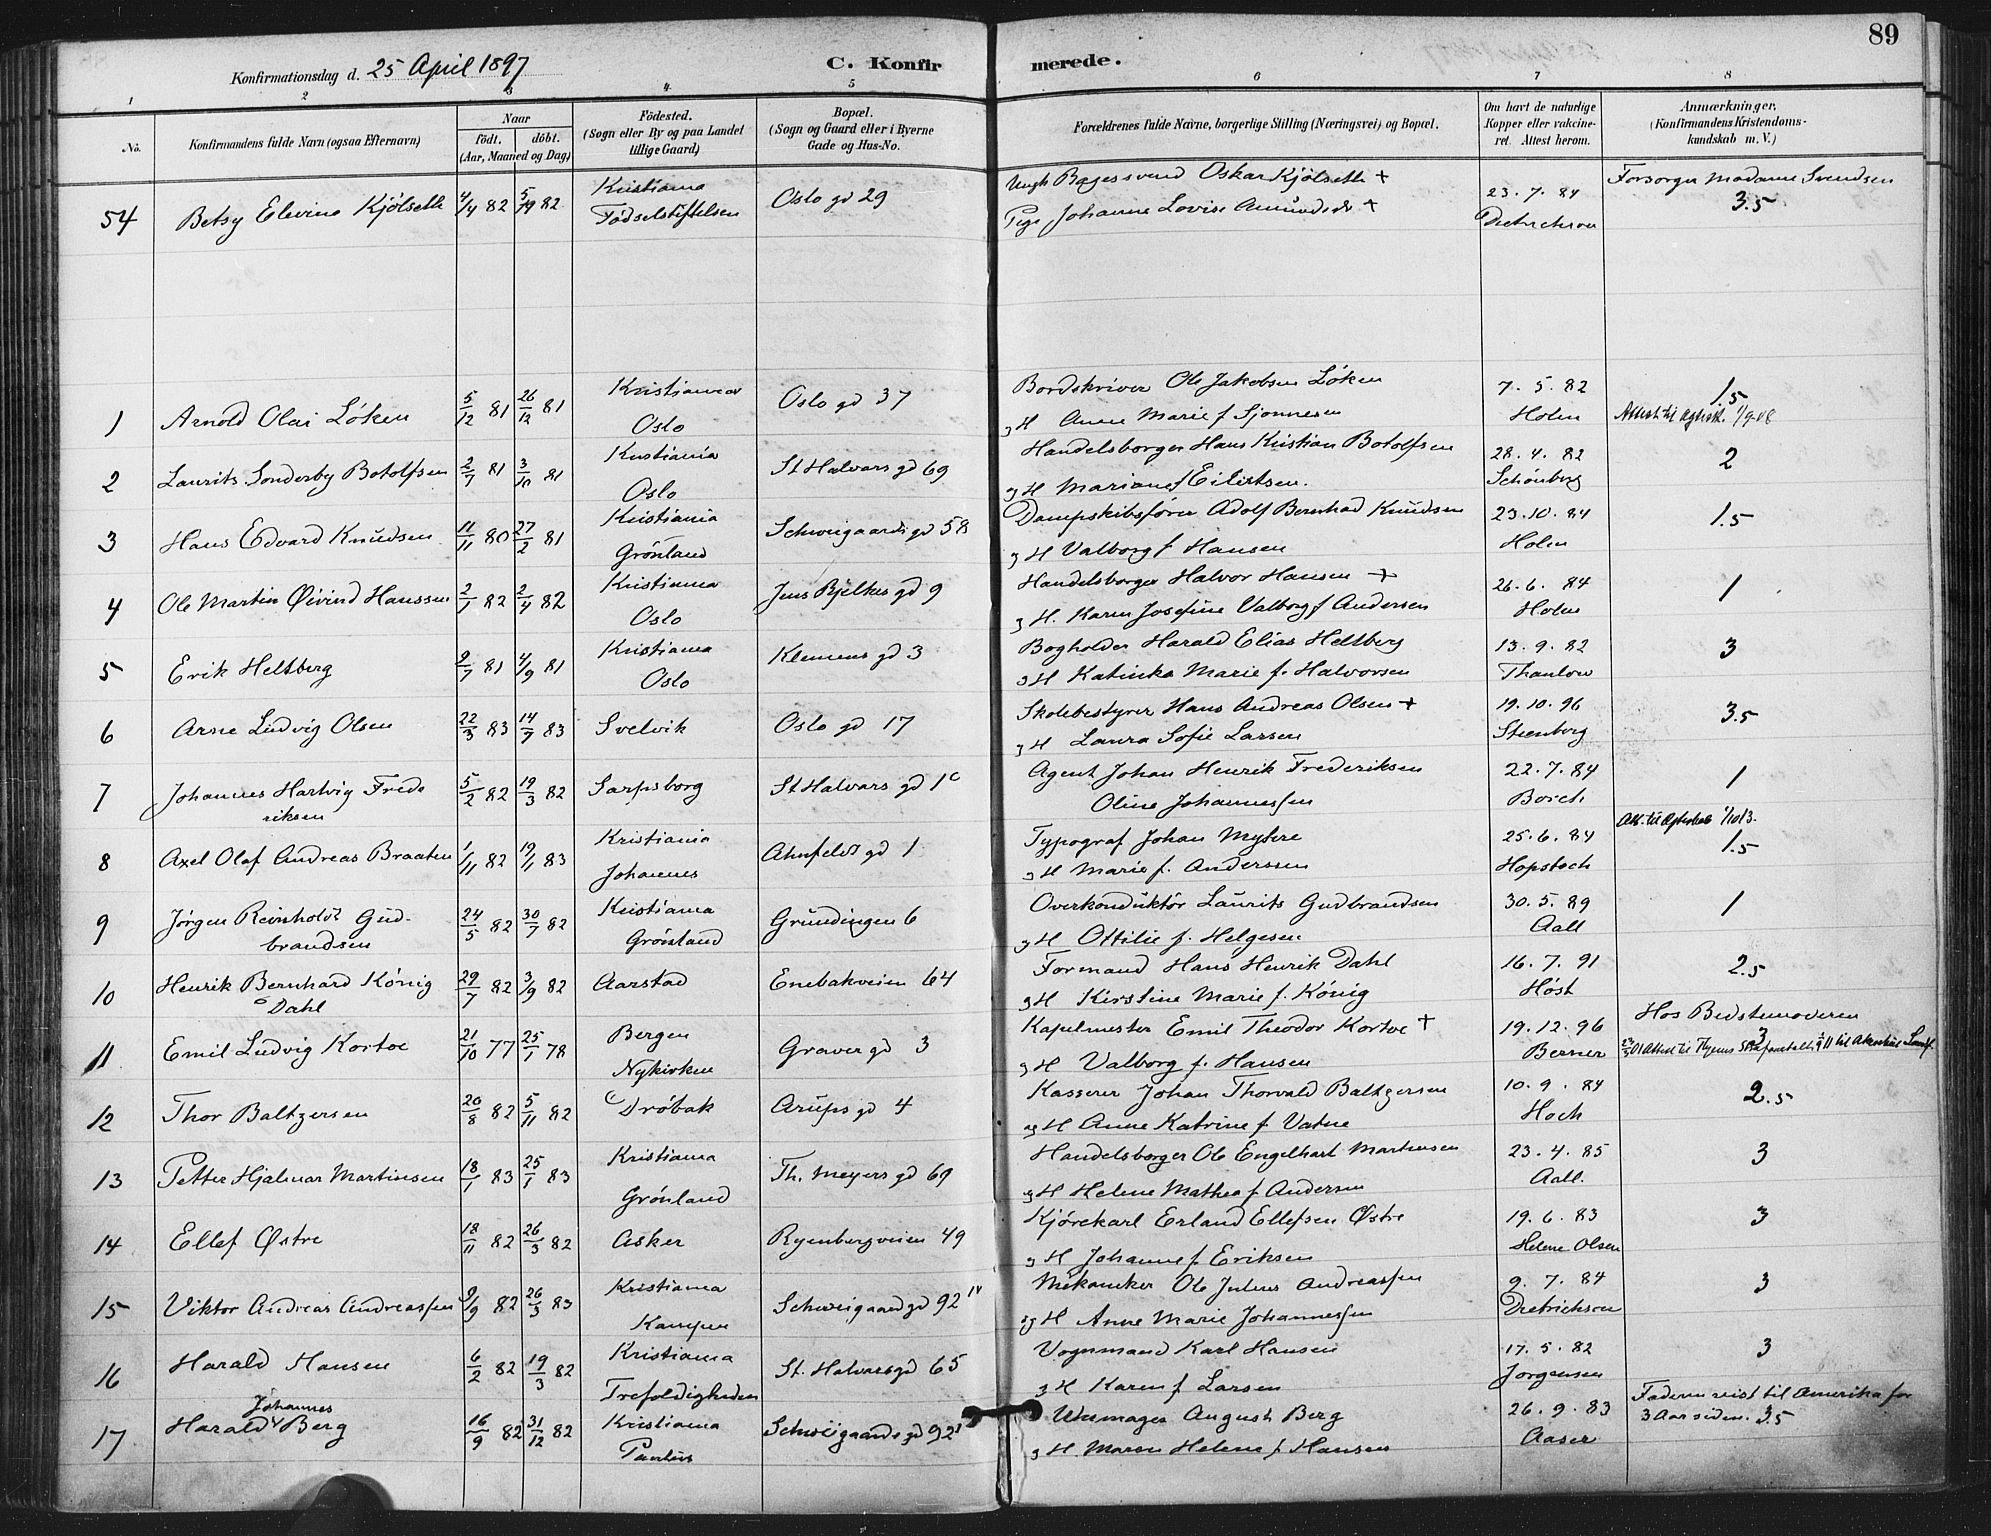 89
Konfirmationsdag d. 25 April 1897 C. Konfirmerede.
1 2 3 4 5 6 7 8
No. Konfirmandens fulde Navn (ogsaa Efternavn) Naar født. døbt. (Aar, Maaned og Dag) Födested. (Sogn eller By og paa Landet tillige Gaard) Bopæl. (Sogn og Gaard eller i Byerne Gade og Hus-No. Forældrenes fulde Navne, borgerlige Stilling (Næringsvei) og Bopæl. Om havt de naturlige Kopper eller vakcineret. Attest herom. Anmærkninger. (Konfirmandens Kristendomskundskab m. V.)
54 Betsy Elevine Kjölseth 4/4 82 5/19 82 Kristiania Oslo gd 29 Ungk Bagersvend Oskar Kjölseth + 23.7.84 Forsorger Madame Svendsen
Födselstiftelsen Pige Johanne Lovise + Dietrichson 3.5
1 Arnold Olai Löken 5/12 81 26/12 81 Kristiania Oslo gd 37 Bordskriver Ole Jakobsen Löken 7.5.82 1.5
Oslo og H Anne Marie f. Sjonnesen Holm Attest til 1/9-08
2 Laurits Sonderby Botolfsen 2/7 81 3/10 81 Kristiania St Halvars gd 69 Handelsborger Hans Kristian Botolfsen 28.4.82 2
Oslo og H Mariane f Eilertsen. Schönberg
3 Hans Edvard Knudsen 11/11 80 27/2 81 Kristiania Schweigaards gd 58 Dampskibsförer Adolf Bernhad Knudsen 23.10.84 1.5
Grönland og H Valborg f Hansen Holm
4 Ole Martin Øivind Hanssen 2/1 82 2/4 82 Kristiania Jens Bjelkes gd 9 Handelsborger Halvor Hansen + 26.6.84 1
Oslo og H. Karen Josefine Valborg f Andersen Holm
5 Erik Heltberg 2/7 81 4/9 81 Kristiania Klemens gd 3 Bogholder Harald Elias Heltberg 13.9.82 3
Oslo og H Katinka Marie f. Halvorsen Thaulow
6 Arne Ludvig Olsen 22/3 83 14/7 83 Svelvik Oslo gd 17 Skolebestyrer Hans Andreas Olsen + 19.10.96 3.5
og H Laura Sofie Larsen Steenberg
7 Johannes Hartvig Frede 5/2 82 19/3 82 Sarpsborg St Halvars gd 1c Agent Johan Henrik Frederiksen 22.7.84 1
riksen Oline Johannessen Borch
8 Axel Olaf Andreas Braaten 1/11 82 19/1 83 Kristiania Ahnfeldt gd 1 Typograf Johan Mytere 25.6.84 1.5
Johannes og H Marie f. Anderssen Hopstock
9 Jørgen Reinholdt Gud- 24/5 82 30/7 82 Kristiania Gründingen 6 Overkonduktör Laurits Gudbrandsen 30.5.89 1
brandsen Grönland og H Ottilie f. Helgesen Aall
10 Henrik Bernhard König 29/7 82 3/9 82 Aarstad Enebakveien 64 Formand Hans Henrik Dahl 16.7.91 2.5
Dahl og H Kirstine Marie f. König Höst
11 Emil Ludvig Kortoe 21/10 77 25/1 78 Bergen Graver gd 3 Kapelmester Emil Theodor Kortoe + 19.12.96 Hos Bedstemoderen
Nykirken og H Valborg f. Hansen Berner 3
12 Thor Baltzersen 20/8 82 5/11 82 Dröbak Arups gd 4 Kasserer Johan Thorvald Baltzersen 10.9.84 2.5
og H Anne Katrine f Vatne Hoch
13 Petter Hjalmar Martinsen 18/1 83 25/1 83 Kristiania Th. Meyers gd 69 Handelsborger Ole Engelhart Martinsen 23.4.85 3
Grönland og H Helene Mathea f. Andersen Aall.
14 Ellef Østre 18/11 82 26/3 82 Asker Ryenbergveien 49 Kjörekarl Erland Ellefsen Østre 19.6.83 3
og H Johanne f. Eriksen Helene Olsen
15 Viktor Andreas Andreassen 9/9 82 26/3 83 Kristiania Schweigaard gd 92 IV Mekaniker Ole Julius Andreassen 9.7.84 3
Kampen og H Anne Marie Johannessen Dietrichson
16 Harald Hansen 6/2 82 19/3 82 Kristiania St. Halvars gd 65 Vognmand Karl Hansen 17.5.82 3
Trefoldigheden og H Karen f Larsen Jorgensen
17 Harald Johannes Berg 16/9 82 31/12 82 Kristiania Schweigaards gd 92 Urmager August Berg 26.9.83 Faderen reist til Amerika for
Paulus og H. Maren Helene f Hansen Aaser 3 Aar siden. 3.5